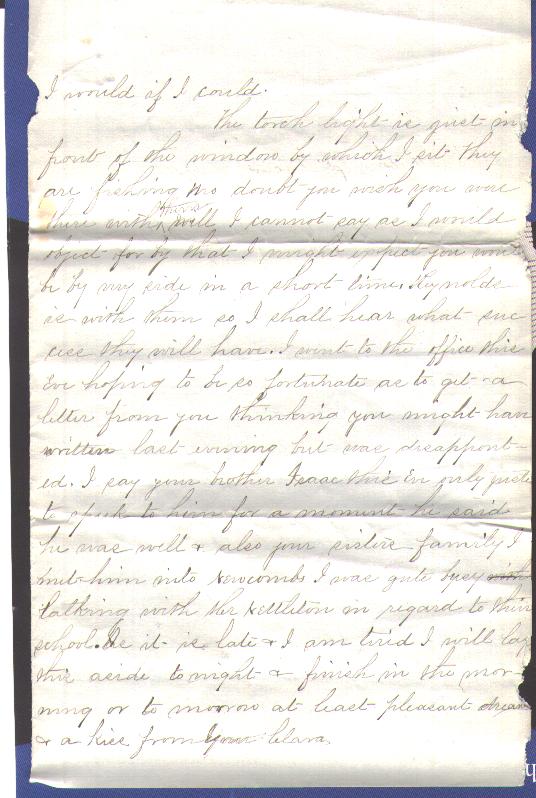 I would if I could.
The torch light is quiet in
front of the window by which I sit they
are fishing no doubt you wish you were
there with them well I cannot say as I would
object for by that I might expect you would
be by my side in a short time. Reynolds
is with them so I shall hear what suc
cess they will have. I went to the office this
Eve hoping to be so fortunate as to get a
letter from you thinking you might have
written last evening but was disappoint-
ed. I say your brother Isaac this Eve only just
to speak to him for a moment he said
he was well & also your sisters family I
met him into Newcombs I was quite busy
talking with Nettleton in regard to their
school. As it is late & I am tired I will lay
this aside tonight & finish in the mor-
ning or to morrow at least pleasant dreams
& a kiss from your Clara.